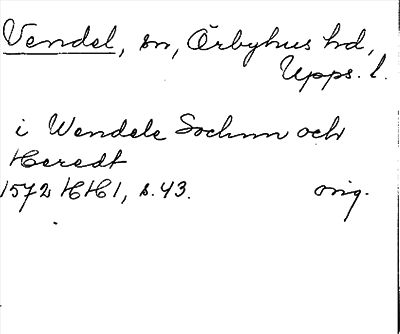 Vendel, sn, Örbyhus hd,
Upps. l.
i Wendele Sochnn och
Heredt
1572 HH1, s. 43. orig.